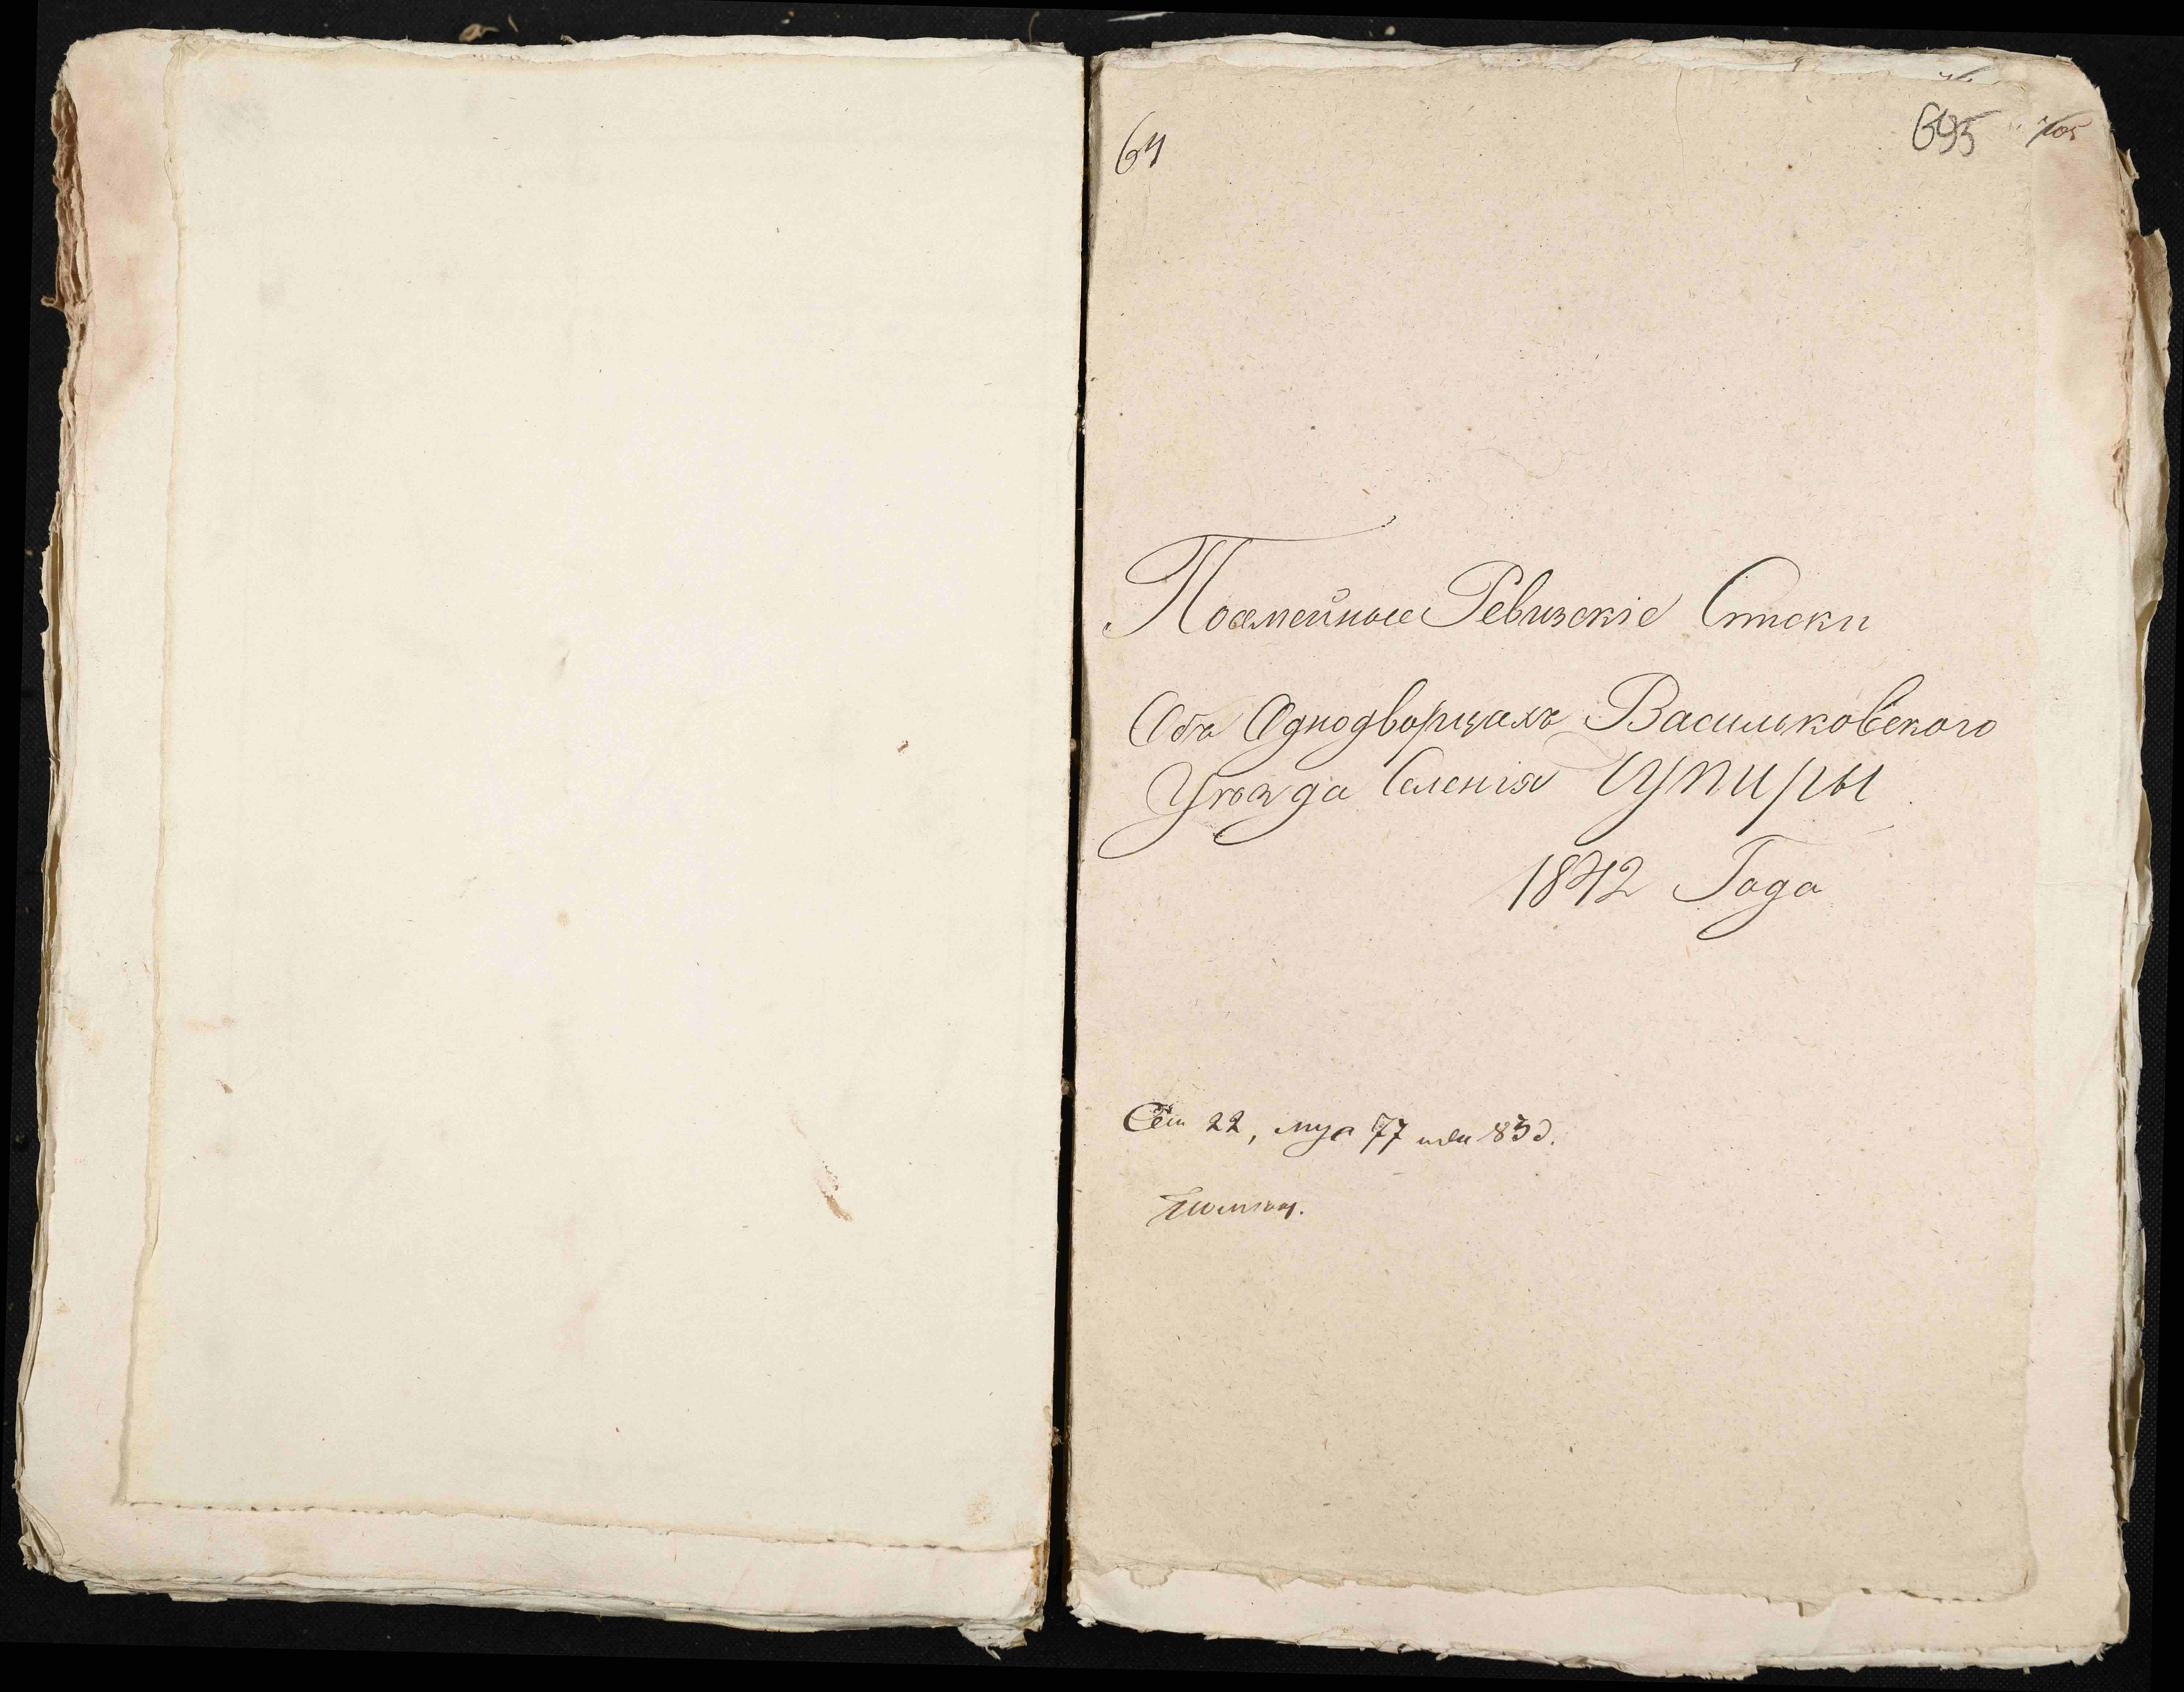 64
695
705
Посемейные Ревизскіе Списки
Объ Однодворцахъ Васильковского
Уѣзда Селенія Чупиры
1842 Года
Сем 22, муж 77